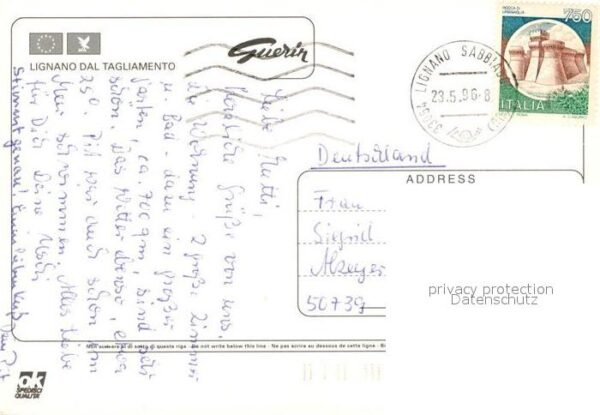 LIGNANO DAL TAGLIAMENTO
Guerin
ROCCA DI URBISAGLIA
750
ITALIA
33054 LIGNANO SABBIAD
23.5.96-8
Liebe Mutti,
herzliche Grüße von uns.
die Wohnung - 2 große Zimmer
u. Bad - dazu ein großer
Garten, ca. 700 qm, sind sehr
schön. Das Wetter ebenso, etwa
25°. Pit war auch schon im
Meer schwimmen. Alles Liebe
für Dich Deine Uschi
Stimmt genau!
Dein Pit
Deutschland
ADDRESS
Frau
Sigrid
50739
privacy protection
Datenschutz
Non scrivere al di sotto di questa riga - Do not write below this line - Ne pas écrire au dessous de cette ligne -
ok
SPEDISCI
QUALITÀ